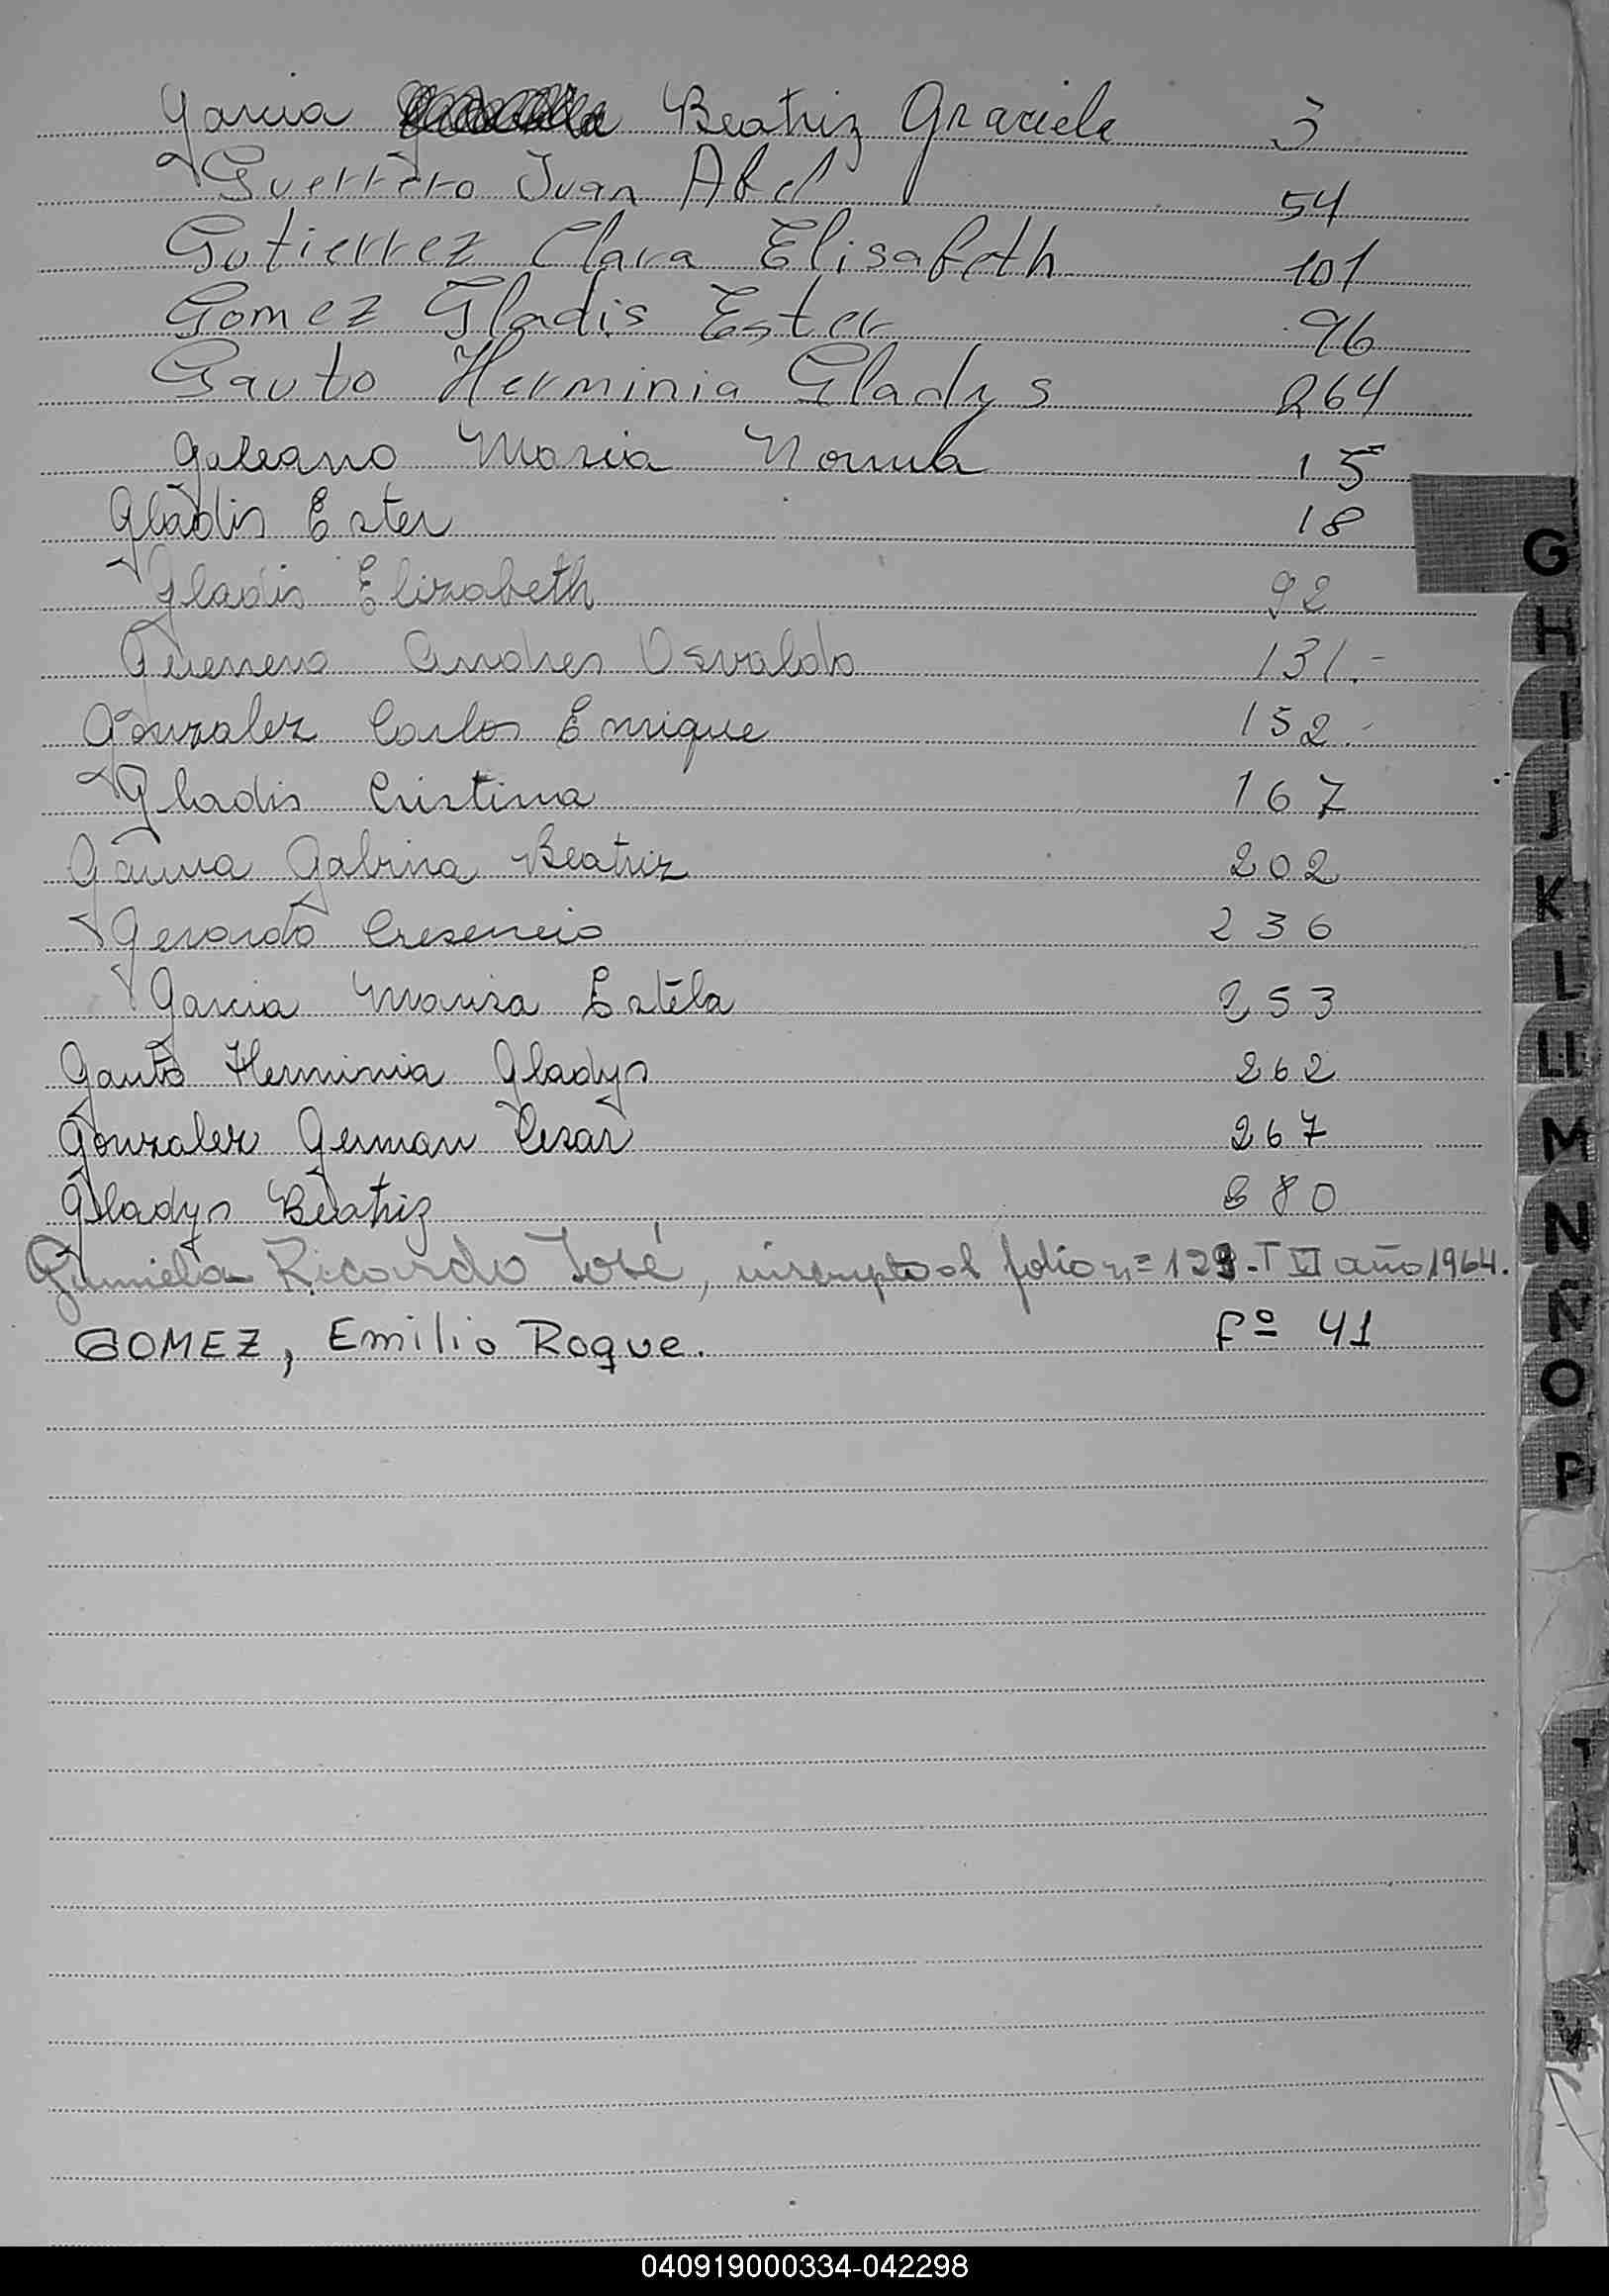 Garcia Beatriz Graciela 3
Guerrero Juan Abel 54
Gutierrez Clara Elisabeth 101
Gomez Gladis Ester 96
Gauto Herminia Gladys 264
Galeano Maria Norma 15
Gladis Ester 18
Gladis Elizabeth 92
Guerrero Andres Osvaldo 131.-
Gonzalez Carlos Enrique 152.-
Gladis Cristina 167
Gabina Beatriz 202
Gerardo Cresencio 236
Garcia Marisa Estela 253
Gauto Herminia Gladys 262
Gonzalez German Cesar 267
Gladys Beatriz 80
Ricardo José, inscripto al folio n= 129-T VI año 1964.
GOMEZ, Emilio Roque. Fº 41
G
H
I
J
K
L
LL
M
N
Ñ
O
P
T
040919000334-042298